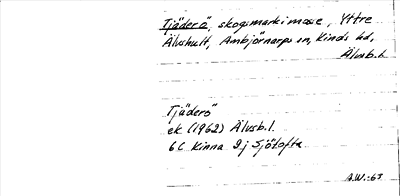 Tjäderö, skogsmark i mosse, Yttre
Älvshult, Ambjörnarps sn, Kinds hd,
Älvsb. l.
Tjäderö
ek. (1962) Älvsb. l.
6C Kinna 9j Sjötofta
A.W.-63